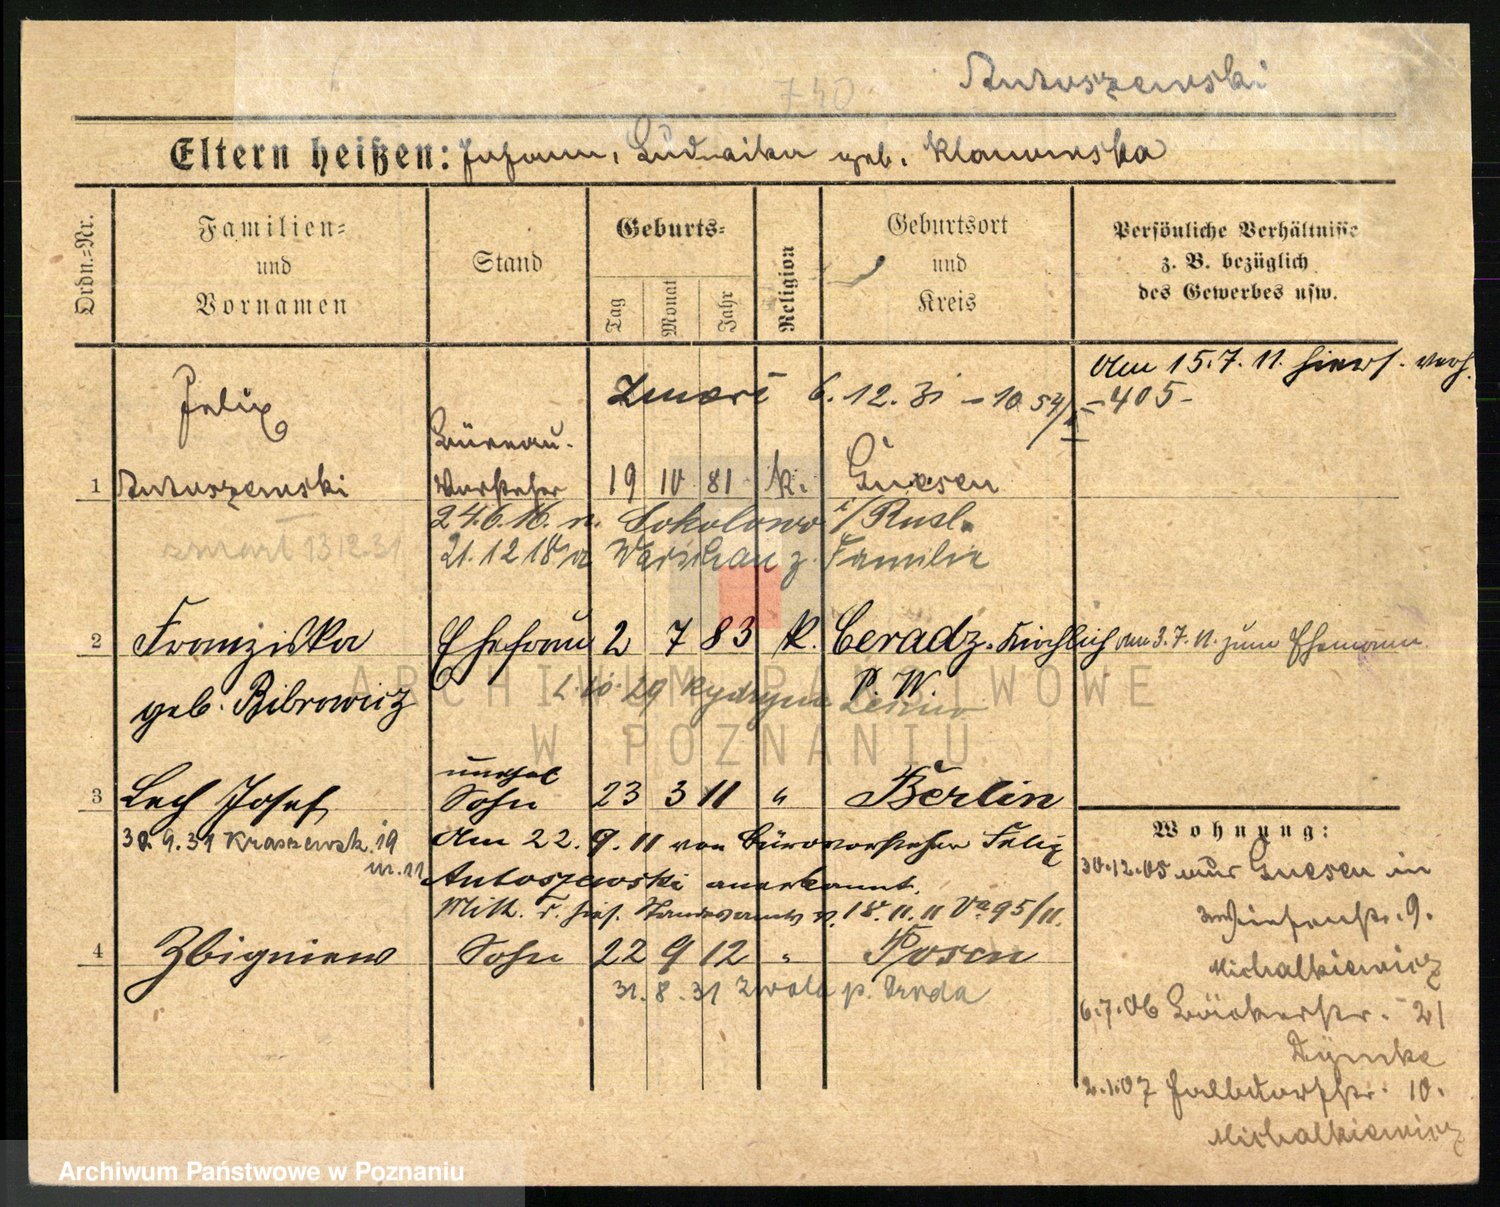 Antoszewski
740
Eltern heißen: Johann, Ludwika geb. Klanowska
Ordn.-Nr.
Familien- und Vornamen
Stand
Geburts-
Tag
Monat
Jahr
Religion
Geburtsort und Kreis
Persönliche Verhältnisse
z. B. bezüglich
des Gewerbes usw.
Am 15.7.11. hiers. verh.
Felix
Zmarł 6.12.31 – 10.54/
– 405 –
Büreau-
1 Antoszewski Vorsteher 19 10 81 k. Gnesen
24.6.16. n. Sokolowo i/Rusl.
zmarł 13 12.31
21.12 18 a Warschau z. Familie
2 Franziska Ehefrau 2 7 83 k. Ceradz. Kirchlich am 3.7.11. zum Ehemann
geb. Bibrowicz P. W.
2.10.29
3 Lech Josef unehel Sohn 23 3 11 " Berlin
30.9.31 Kraszewsk. 19
m. 11
Am 22.9.11 von Bürovorsteher Felix
Antoszewski anerkannt.
Mitt. d. hies. Standesamts v. 18.11.11 Va 95/11.
4 Zbigniew Sohn 22 9 12 " Posen
31.8.31 Zwola p. Środa
Wohnung:
30.12.05 aus Gnesen in
Wiesenstr. 9.
Michalkiewicz
6.7.06 Bäckerstr. 21
Dymke
2.1.07 Halbdorfstr. 10.
Michalkiewicz
ARCHIWUM PAŃSTWOWE
W POZNANIU
Archiwum Państwowe w Poznaniu